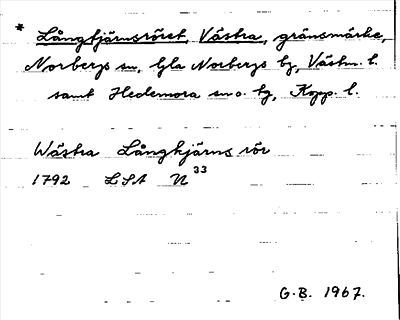 * Långtjärnsröret, Västra, gränsmärke,
Norbergs sn, Gla Norbergs bg, Västm. l.
samt Hedemora sn o. hg, Kopp. l.
Wästra Långkjärns rör
1792 LSA N 33
G.B. 1967.